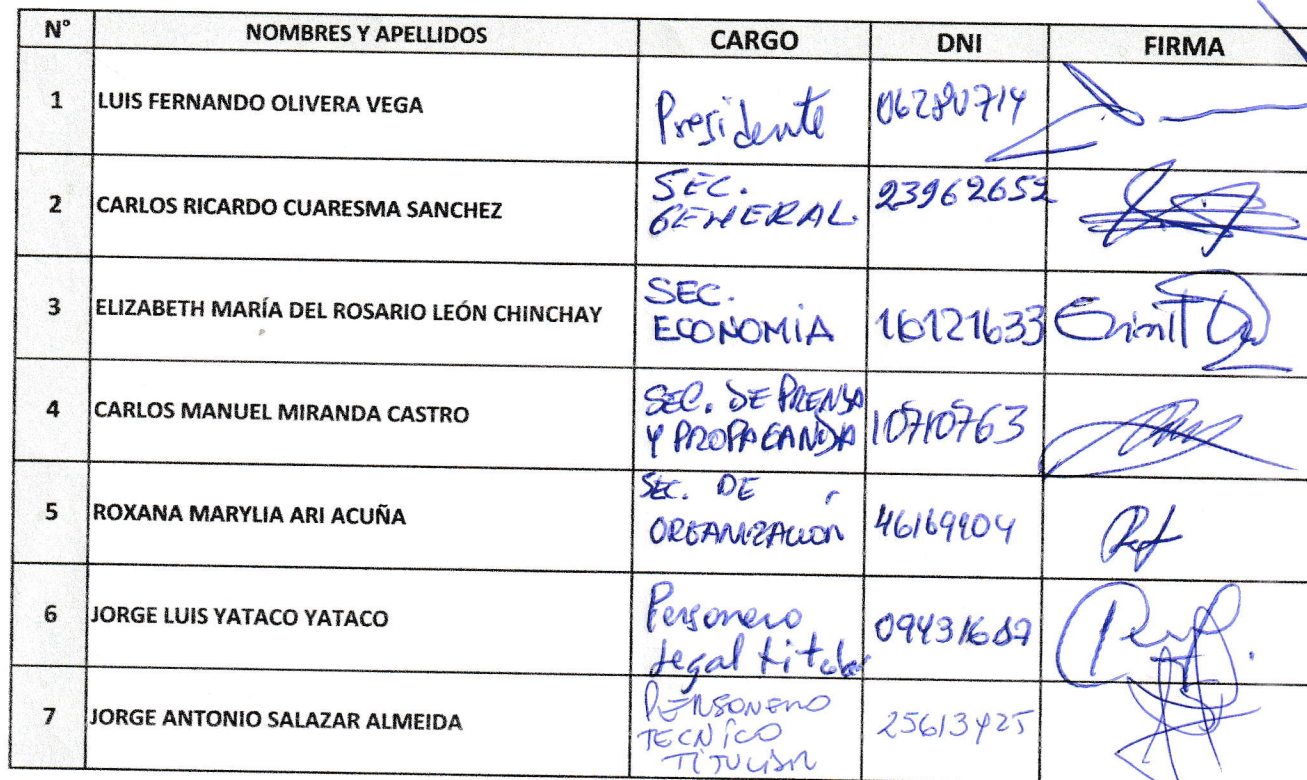 N° NOMBRES Y APELLIDOS CARGO DNI FIRMA
1 LUIS FERNANDO OLIVERA VEGA Presidente 06280714
2 CARLOS RICARDO CUARESMA SANCHEZ SEC. GENERAL. 23962652
3 ELIZABETH MARÍA DEL ROSARIO LEÓN CHINCHAY SEC. ECONOMIA 16121633
4 CARLOS MANUEL MIRANDA CASTRO SEC. DE PRENSA Y PROPAGANDA 10710763
5 ROXANA MARYLIA ARI ACUÑA SEC. DE ORGANIZACIÓN
6 JORGE LUIS YATACO YATACO Personero Legal titular
7 JORGE ANTONIO SALAZAR ALMEIDA PERSONERO TECNÍCO TITULAR 25613425